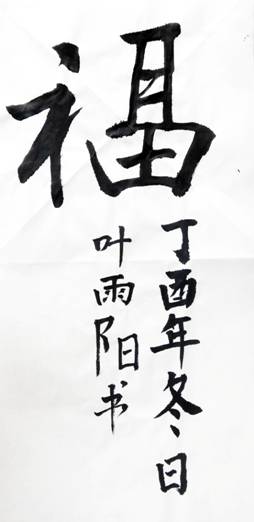 福
丁酉年冬日
叶雨阳书